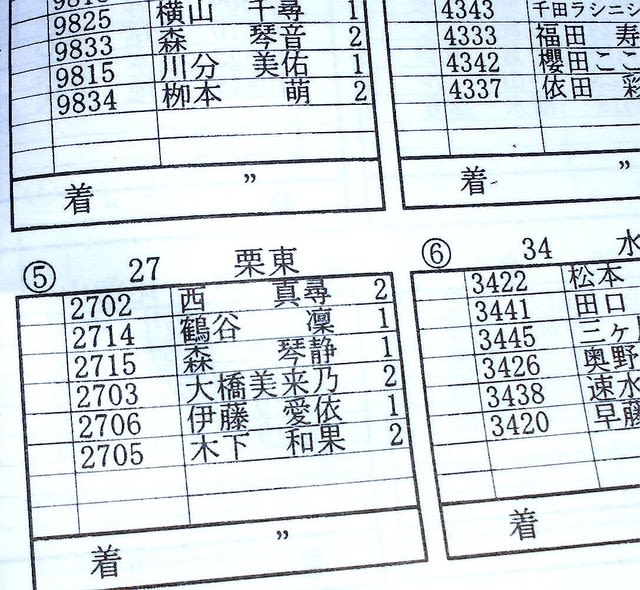 9825 横山 千尋 1
9833 森 琴音 2
9815 川分 美佑 1
9834 栁本 萌 2
着 〃
4343 千田ラシニシ
4333 福田 寿
4342 櫻田ここ
4337 依田 彩
着 〃
⑤ 27 栗東
2702 西 真尋 2
2714 鶴谷 凜 1
2715 森 琴静 1
2703 大橋美来乃 2
2706 伊藤 愛依 1
2705 木下 和果 2
着 〃
⑥ 34 水
3422 松本
3441 田口
3445 三ヶ
3426 奥野
3438 速水
3420 早藤
着